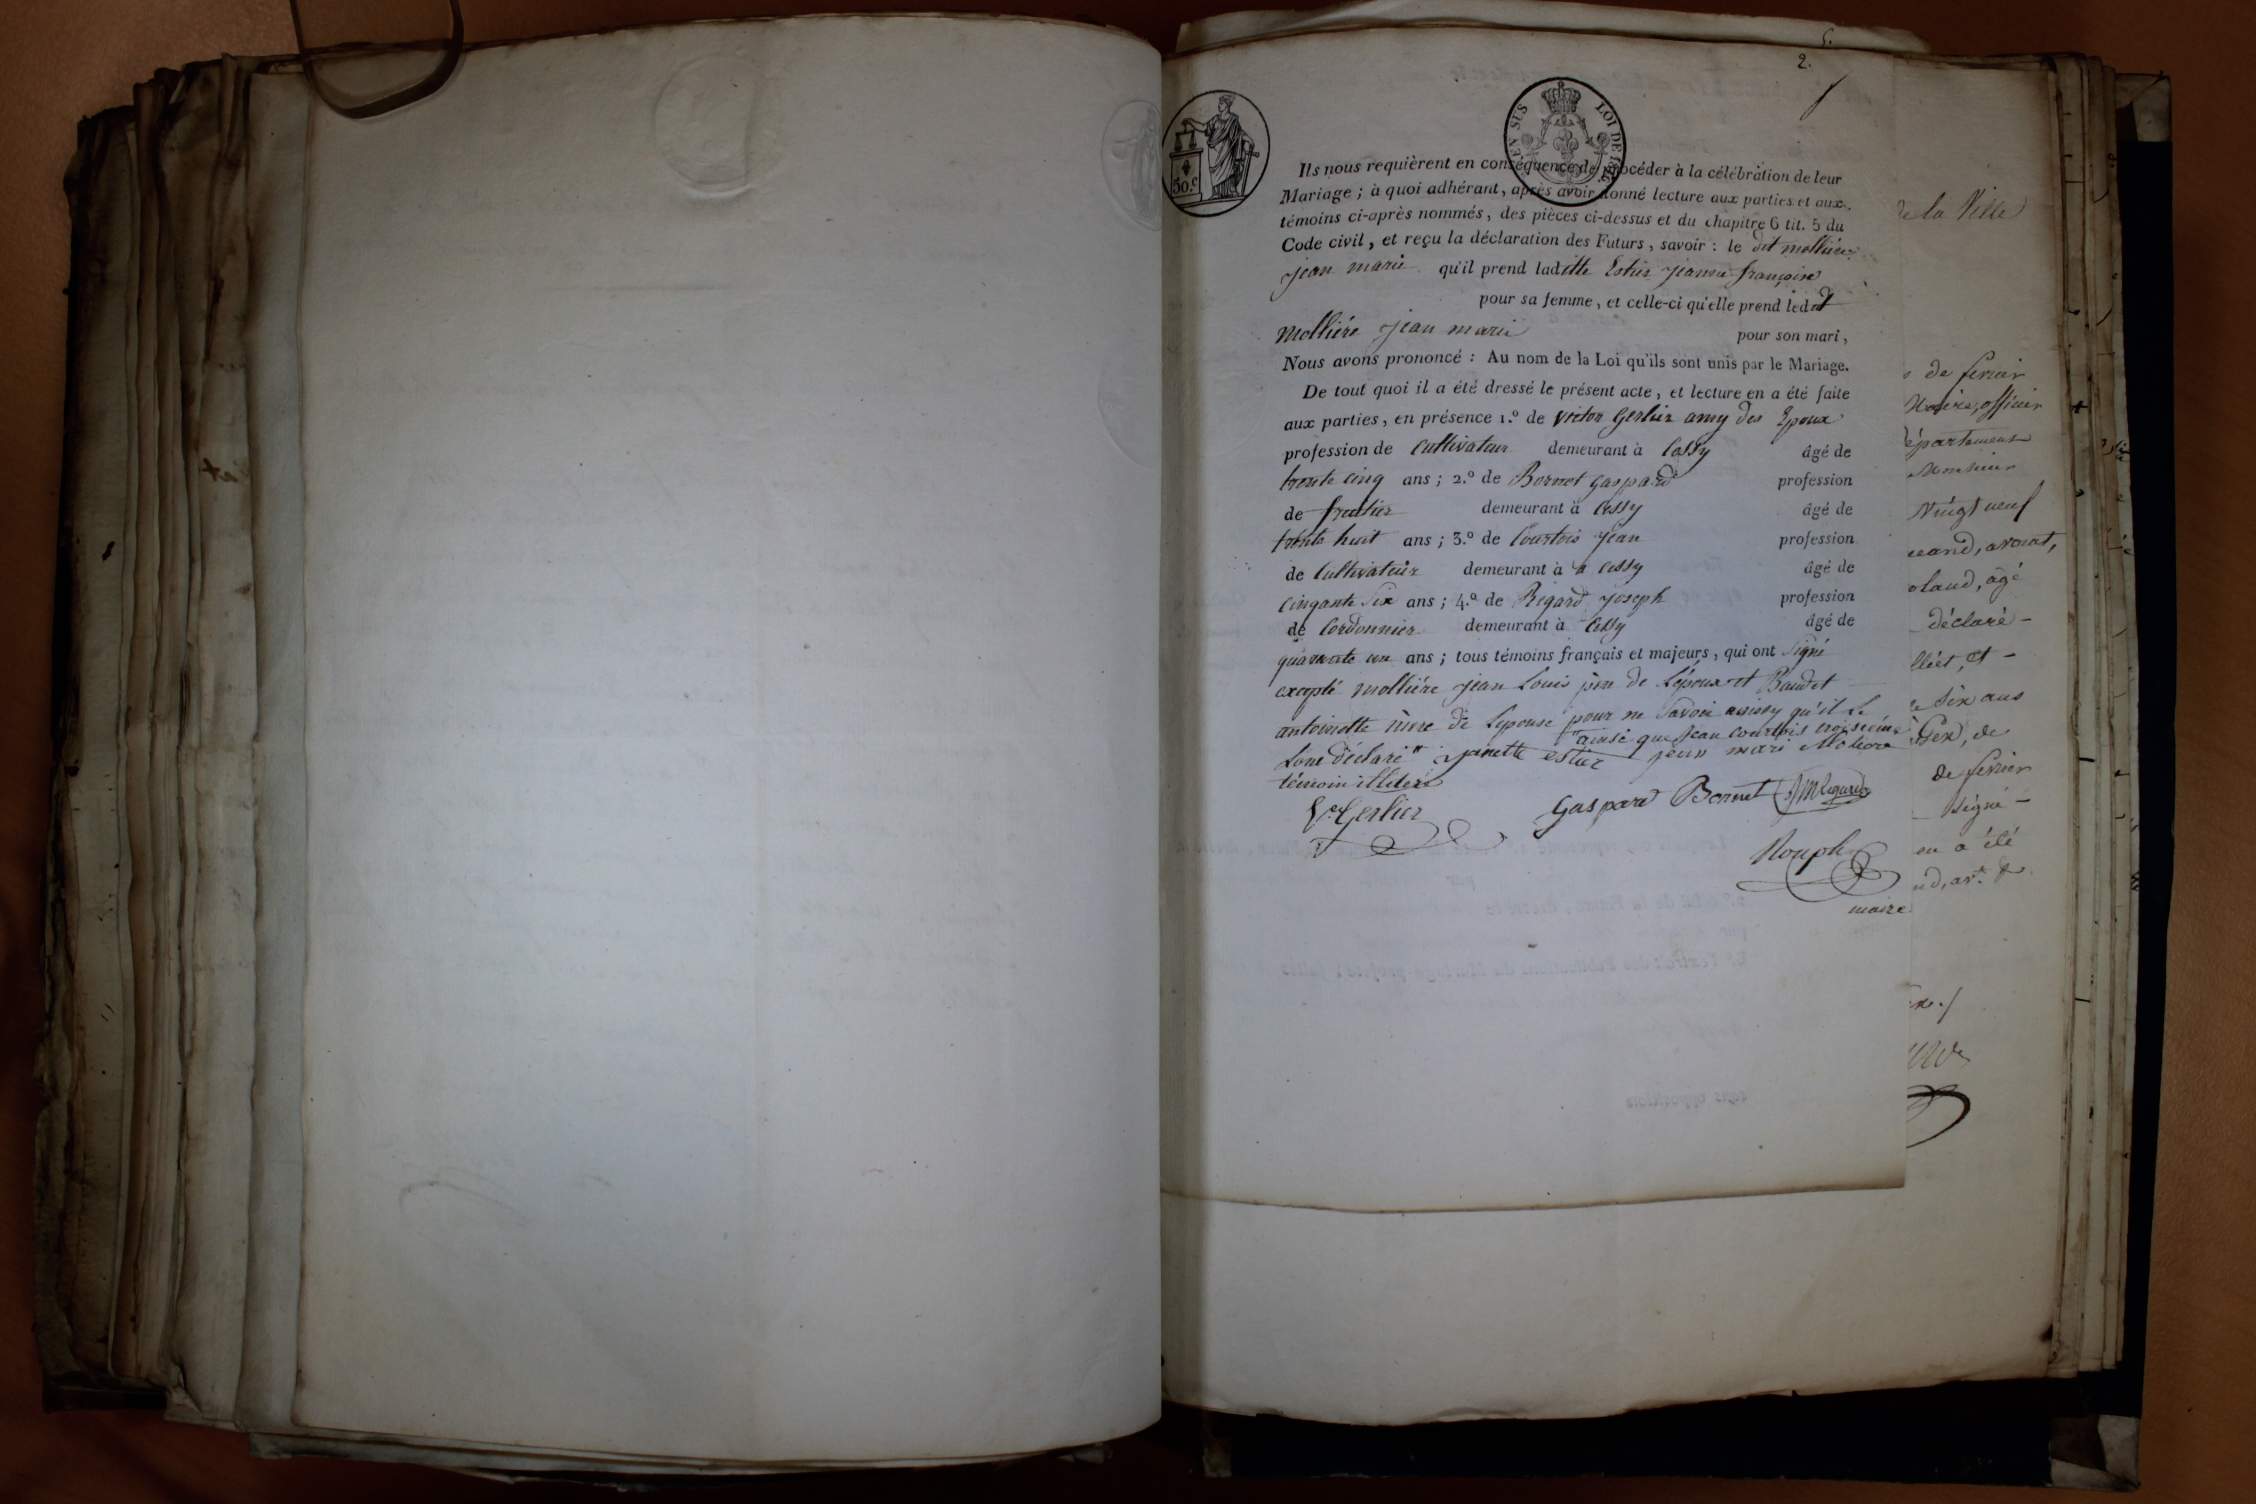 5.
2.
30.c
LOI DE 1816.
Ils nous requièrent en conséquence de procéder à la célébration de leur
Mariage ; à quoi adhérant, après avoir donné lecture aux parties et aux
témoins ci-après nommés, des pièces ci-dessus et du chapitre 6 tit. 5 du
Code civil, et reçu la déclaration des Futurs, savoir : le dit mollière
jean marie qu'il prend laditte Estier jeanne françoise
pour sa femme, et celle-ci qu'elle prend ledit
mollière jean marie pour son mari,
Nous avons prononcé : Au nom de la Loi qu'ils sont unis par le Mariage.
De tout quoi il a été dressé le présent acte, et lecture en a été faite
aux parties, en présence 1.º de victor Gerlier amy des Epoux
profession de Cultivateur demeurant à Cessy âgé de
trente cinq ans ; 2.º de Bornet gaspard profession
de fruitier demeurant à Cessy âgé de
trente huit ans ; 3.º de Courtois jean profession
de Cultivateur demeurant à a Cessy âgé de
cinqante Six ans ; 4.º de Regard joseph profession
de Cordonnier demeurant à Cessy âgé de
quarante un ans ; tous témoins français et majeurs, qui ont Signé
excepté mollière jean Louis père de L'époux et Baudet
antoinette mere de Lepouse pour ne Savoir ainsy qu'il Le
"ainsi que jean courtois troisieme
Lont déclaré" janette estier jean mari Moliere
témoin illiteré
Vor Gerlier Gaspard Bornet JM Regard
Rouph
maire
de la Ville
de fevrier
Maire, officier
département
Monsieur
Vingt neuf
avocat,
âgé
déclaré -
et -
Six ans
Gex, de
de fevrier
Signé -
en a été